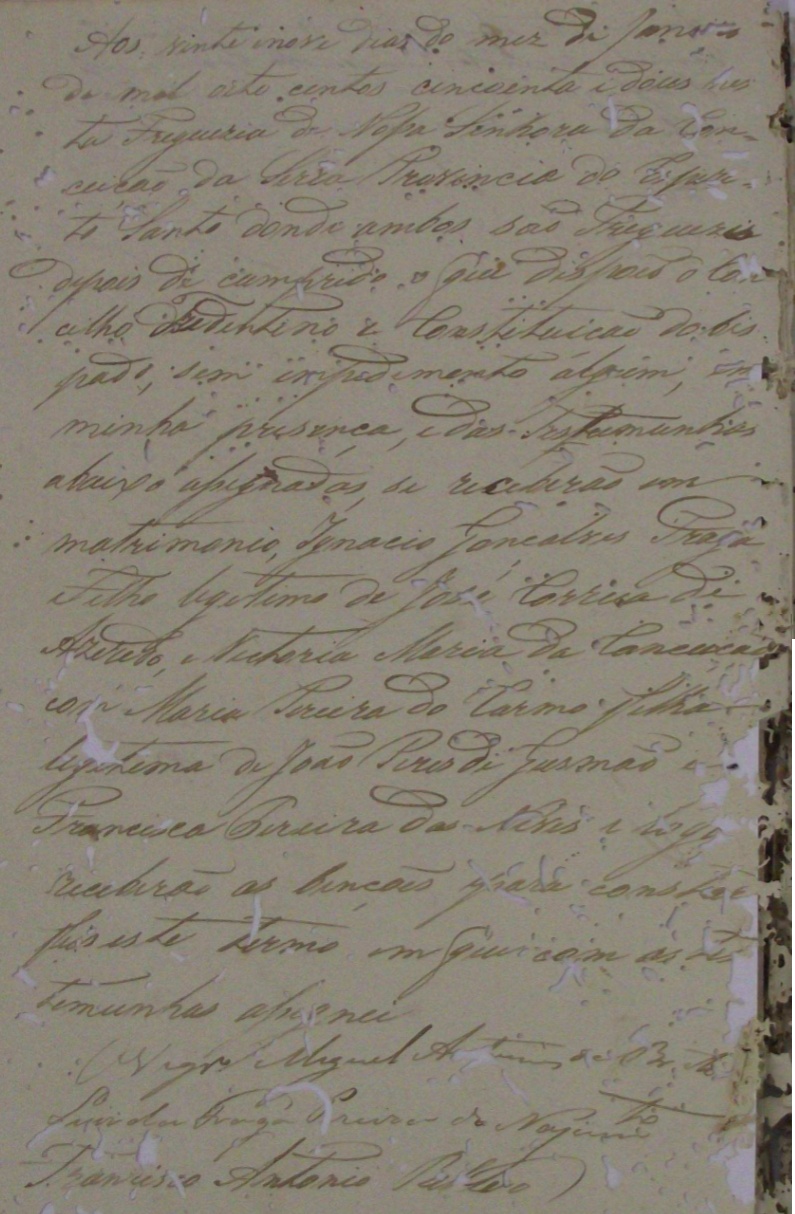 Aos vinte inove dias do mez de Janeiro
de mil oito centos cincoenta e dous nes
ta Freguezia de Nossa Senhora da Con-
ceicaõ da Serra Provincia do Espiri-
to Santo donde ambos saõ Freguezes
depois de cumprido o que dispoẽ o Con
cilho Tredentino e Constituicaõ do bis
pado, sem impedimento algum, em
minha presença, e das Testamunhas
abaixo assignadas, se receberaõ em
matrimonio, Ignacio Goncalves Fraga
Filho legitimo de José Correa de
Azeredo, e Victoria Maria da Conceicaõ
com Maria Pereira do Carmo filha
legitima de Joaõ Pires de Gusmaõ e
Francisca Pereira das Neves e logo
receberaõ as bencoẽs para constar
fis este termo em que com as tes
temunhas assignei
O Vigrº Miguel Antunes de
Fraga Pereira do
Francisco Antonio